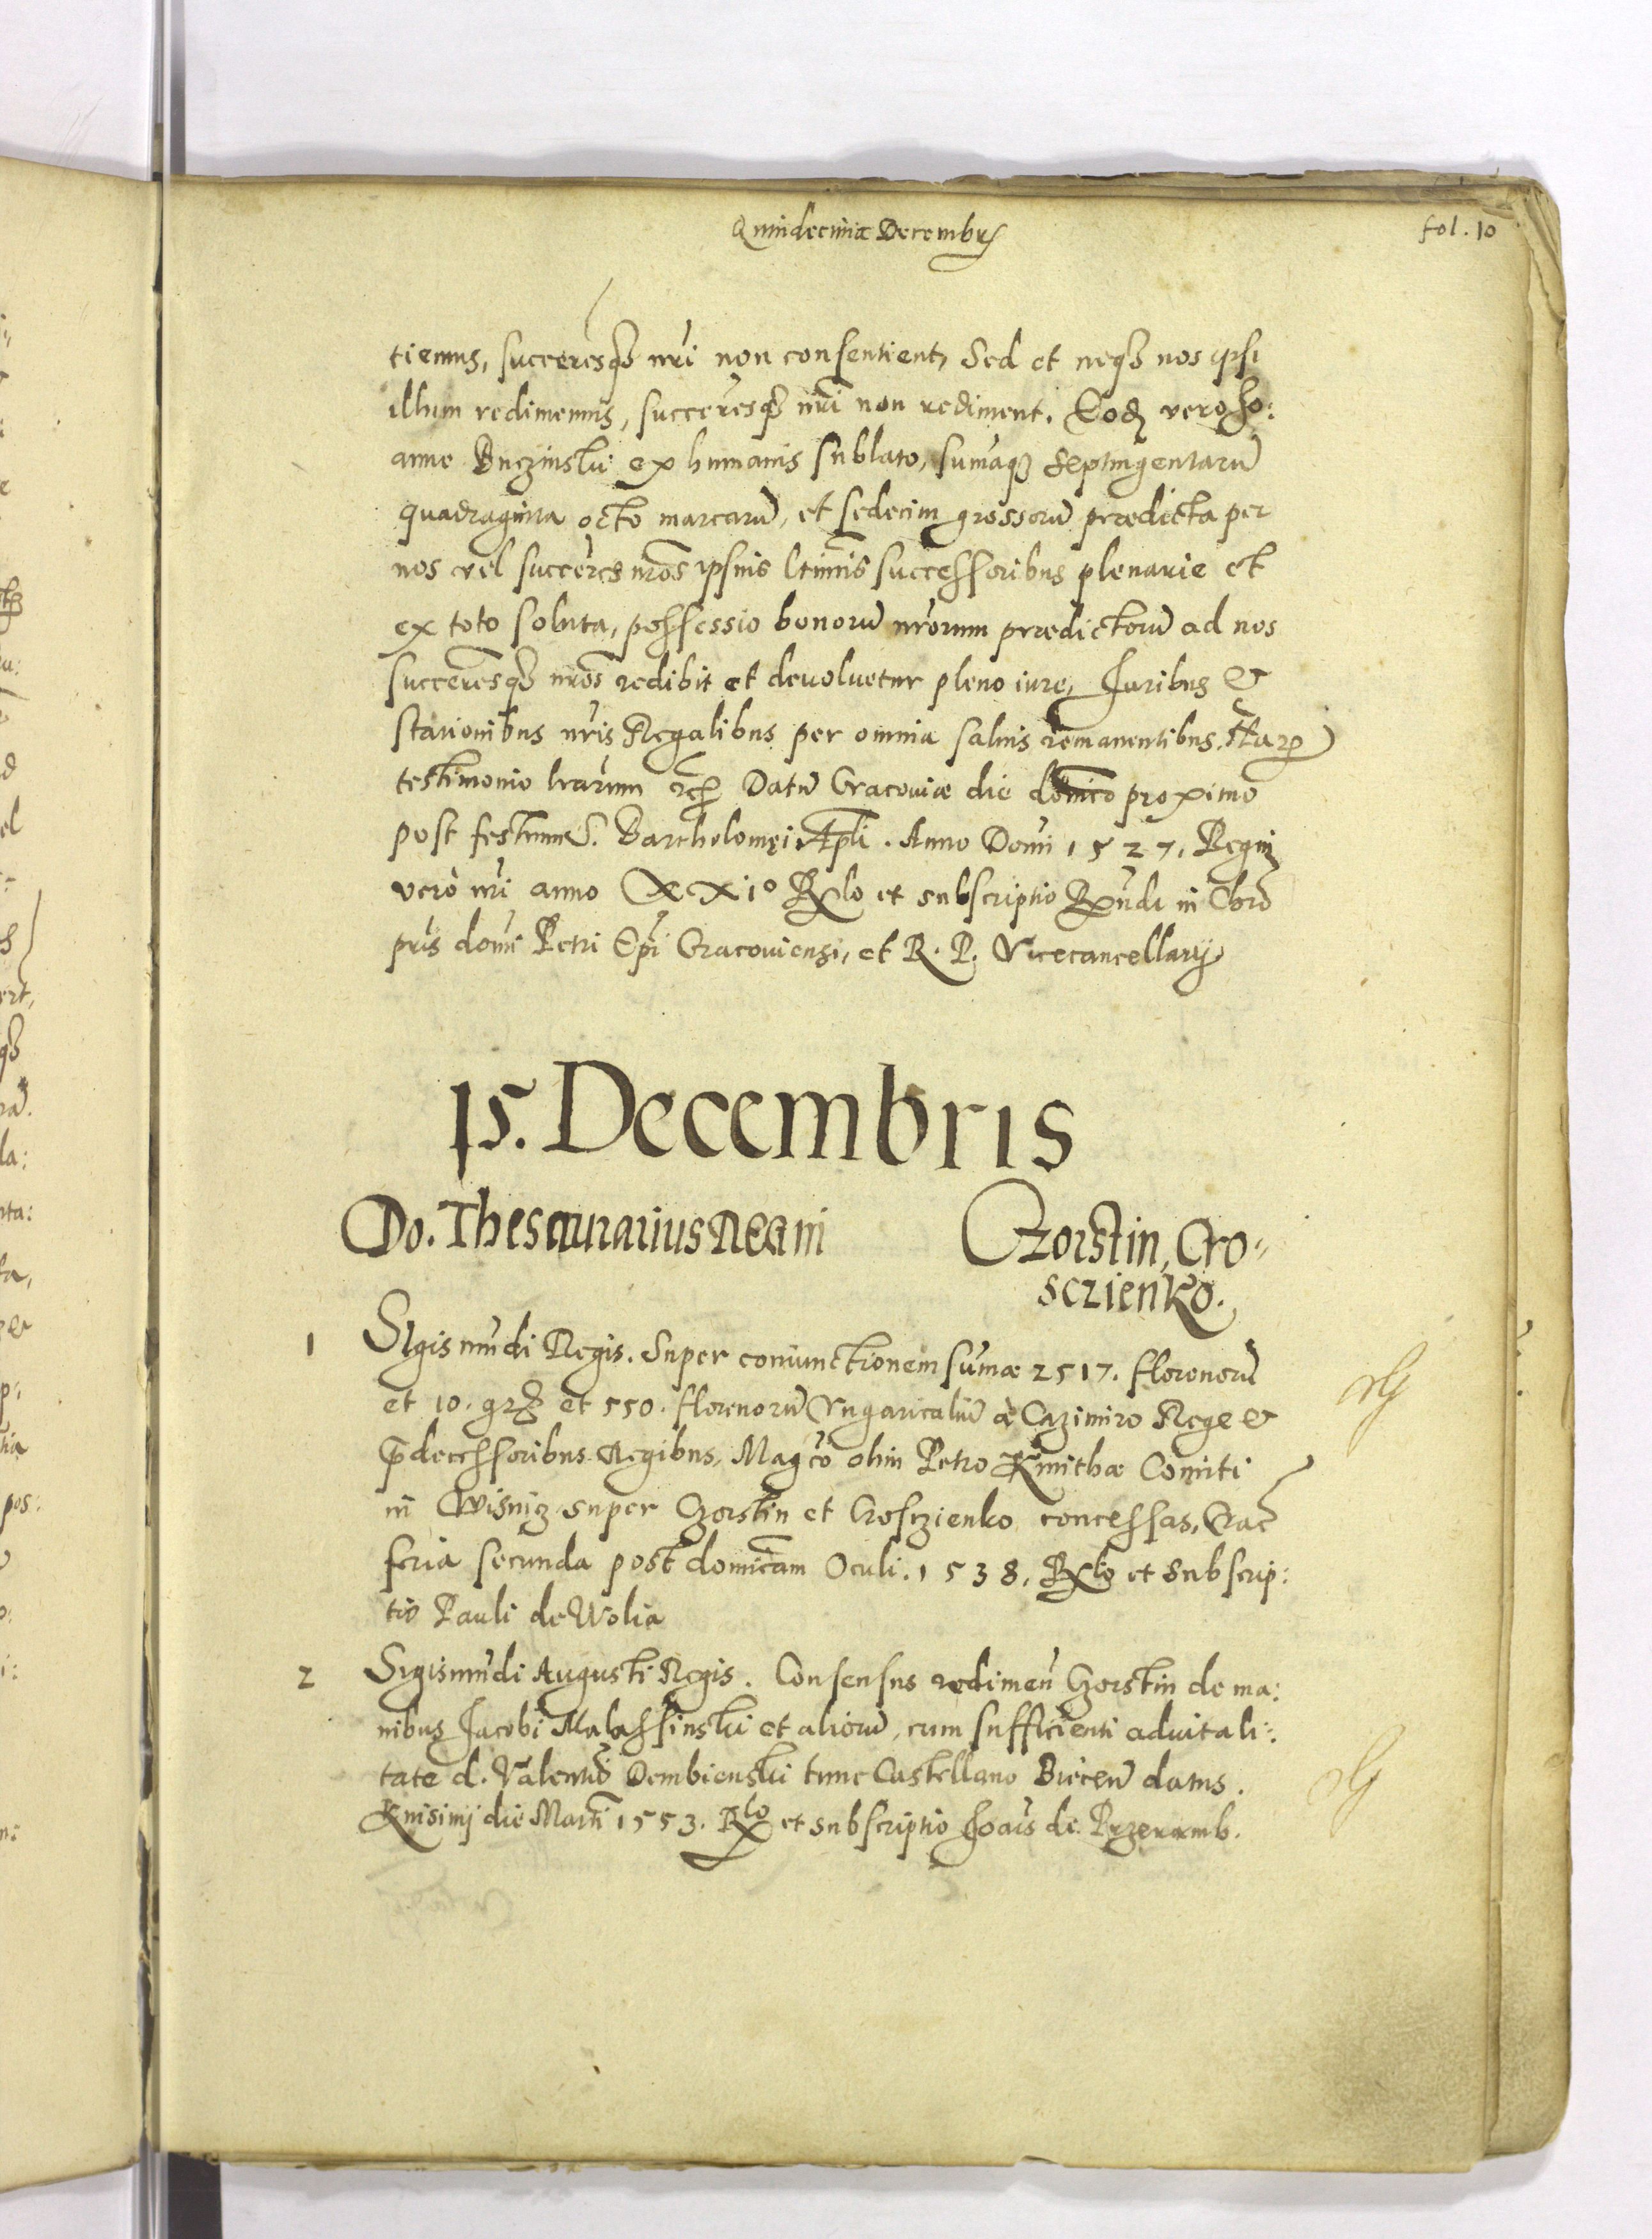 Quindecima Decembris
fol. 10
tiemus, succeresq3 nři non consentient, Sed et neq3 nos ipsi
illum redimemus, succeresq3 nři non rediment. Eod vero Jo:
anne Buczinski ex humanis sublato, sumaq3 Septingentarū
quadraginta octo marcarū, et sedecim grossorū prædicta per
nos vel succeres nros ipsius ltimis successoribus plenarie et
ex toto soluta, possessio bonorū nrorum prædictorū ad nos
succeresq3 nros redibit et devoluetur pleno iure, Juribus et
stationibus nris Regalibus per omnia saluis remanentibus. Har
testimonio lrarum Datū Cracoviæ die dominico proximo
post festum S. Bartholomęi Apli. Anno Domi 1527. Regni
vero nri anno XXI° Rxlo et subscriptio Rxndi in Chro
pris domi Petri Epi Cracoviensi, et R. P. Vicecancellarij
15. Decembris
Do. Thesaurarius Regni
Czorstin, Cro=
sczienko.
1 Sigismūdi Regis. Super coniunctionem sumæ 2517. florenorū
et 10. gr et 550. florenorū Vngaricaliū a Cazimiro Rege et
p̄decessoribus Regibus, Magco olim Petro Kmithæ Comiti
in Wisnicz super Czorstin et Crosczienko concessas, Crac
feria secunda post domicam Oculi. 1538. Rxlo et Subscrip:
tio Pauli de Wolia
2 Sigismūdi Augusti Regis. Consensus redimen Czorstin de ma:
nibus Jacobi Malassinski et aliorū, cum sufficienti aduitali:
tate d. Valentino Dembienski tunc Castellano Biecen datus.
Knisinij die Marti 1553. Rxlo et subscriptio Joais de Przeramb.